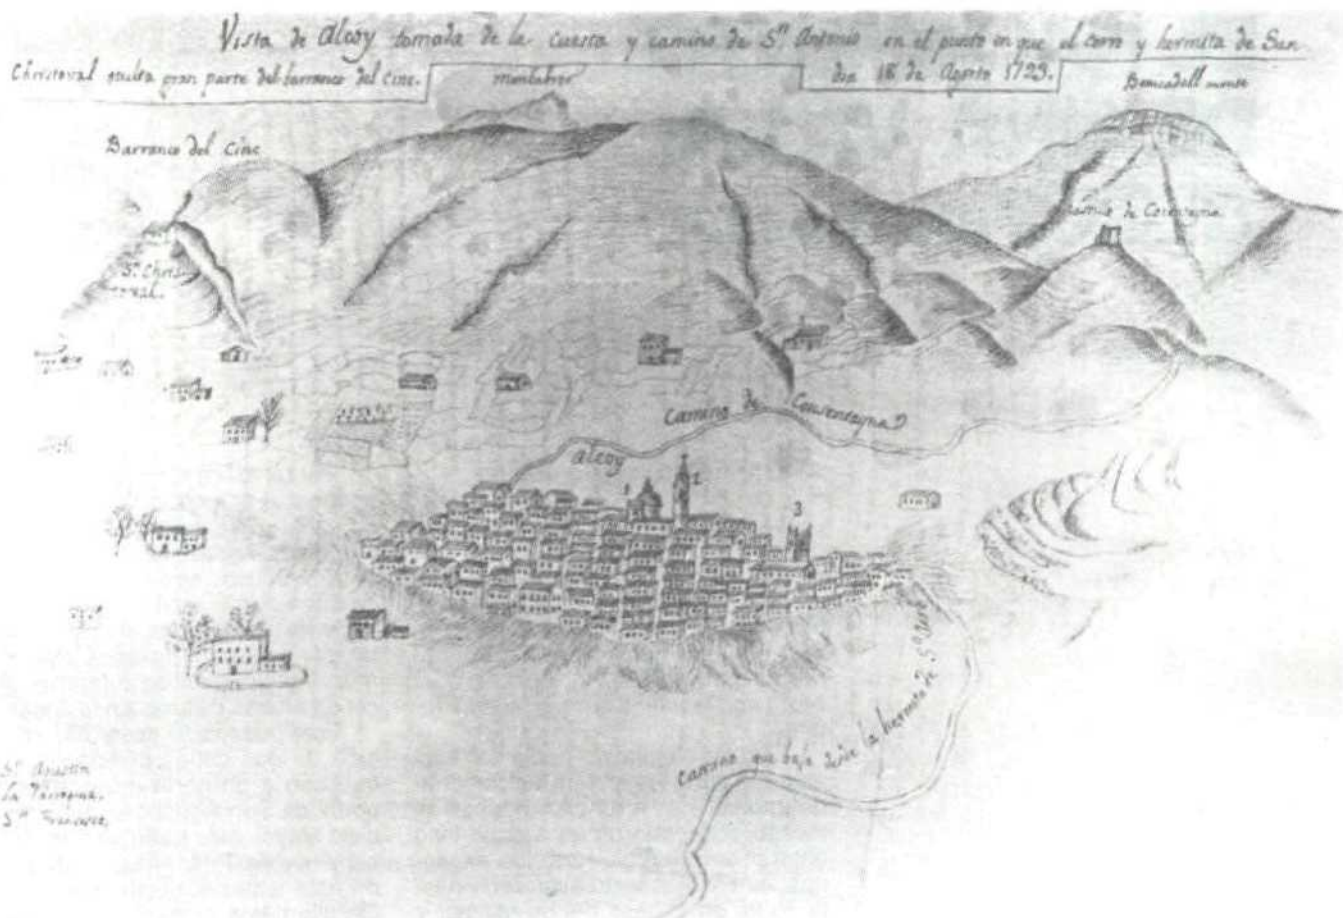 Vista de Alcoy tomada de la cuesta y camino de Sn. Antonio en el punto en que el cerro y hermita de San
Christoval oculta gran parte del barranco del Cinc.
dia 18 de Agosto 1793.
Moncabrer
Benicadell monte
Barranco del Cinc
Sn. Chris
toval.
de Cocentayna
Camino de Cocentayna
Alcoy
1
2
3
camino que baja desde la hermita de Sn. Ant
Sn. Agustin
La Parroquia.
Sn. Francisco.